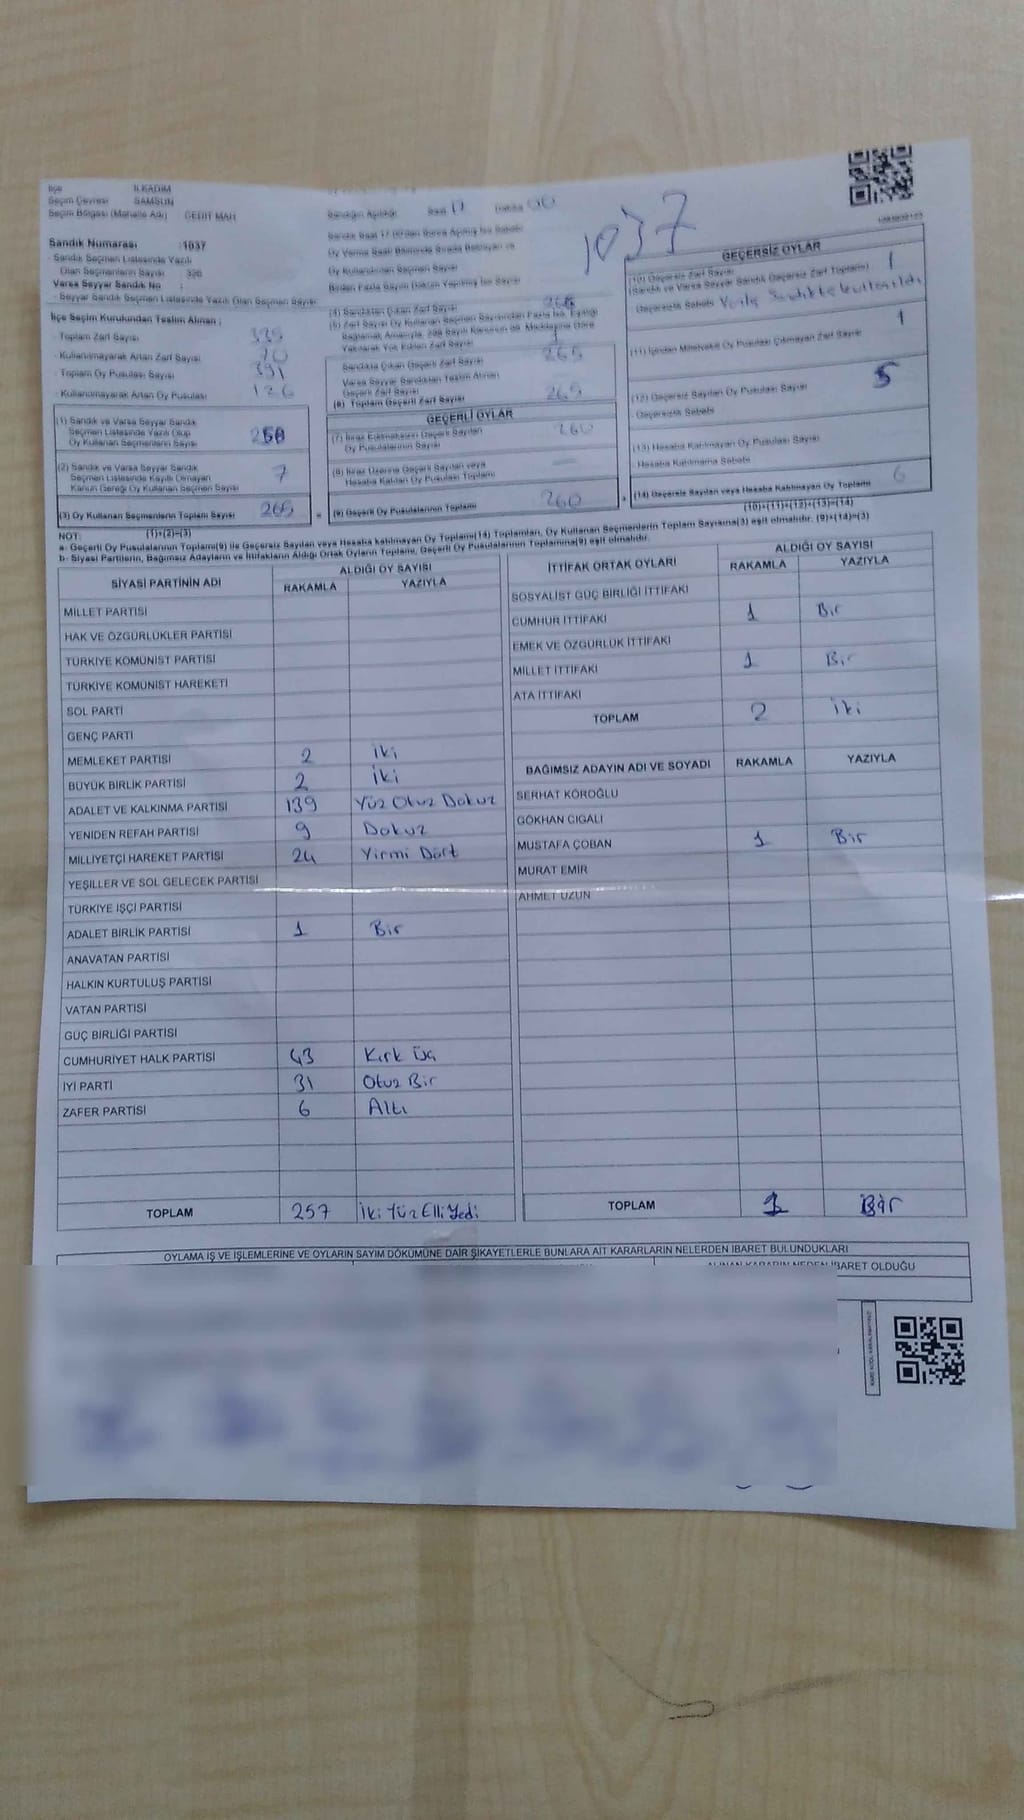 İlçe İLKADIM
Seçim Çevresi SAMSUN
Seçim Bölgesi (Mahalle Adı) GEDİT MAH
Sandık Numarası :1037
Sandık Seçmen Listesinde Yazılı
Olan Seçmenlerin Sayısı 326
Varsa Seyyar Sandık No :
Seyyar Sandık Seçmen Listesinde Yazılı Olan Seçmen Sayısı
İlçe Seçim Kurulundan Teslim Alınan :
Toplam Zarf Sayısı
Kullanılmayarak Artan Zarf Sayısı 70
Toplam Oy Pusulası Sayısı 391
Kullanılmayarak Artan Oy Pusulası 126
(1) Sandık ve Varsa Seyyar Sandık
Seçmen Listesinde Yazılı Olup
Oy Kullanan Seçmenlerin Sayısı 258
(2) Sandık ve Varsa Seyyar Sandık
Seçmen Listesinde Kayıtlı Olmayan
Kanun Gereği Oy Kullanan Seçmen Sayısı 7
(3) Oy Kullanan Seçmenlerin Toplam Sayısı 265
(1)+(2)=(3)
Sandığın Açıldığı Saat 17 Dakika 00
1037
Oy Kullandıran Seçmen Sayısı
(4) Sandıktan Çıkan Zarf Sayısı 266
1
Sandıkta Çıkan Geçerli Zarf Sayısı 265
Varsa Seyyar Sandıktan Teslim Alınan
Geçerli Zarf Sayısı
(6) Toplam Geçerli Zarf Sayısı 265
GEÇERLİ OYLAR
(7) İtiraz Edilmeksizin Geçerli Sayılan
Oy Pusulalarının Sayısı 260
(8) İtiraz Üzerine Geçerli Sayılan veya
Hesaba Katılan Oy Pusulası Toplamı
(9) Geçerli Oy Pusulalarının Toplamı 260
GEÇERSİZ OYLAR
(10) Geçersiz Zarf Sayısı
(Sandık ve Varsa Seyyar Sandık Geçersiz Zarf Toplamı) 1
Geçersizlik Sebebi
(11) İçinden Milletvekili Oy Pusulası Çıkmayan Zarf Sayısı 1
(12) Geçersiz Sayılan Oy Pusulası Sayısı 5
Geçersizlik Sebebi
(13) Hesaba Katılmayan Oy Pusulası Sayısı
Hesaba Katılmama Sebebi
(14) Geçersiz Sayılan veya Hesaba Katılmayan Oy Toplamı 6
(10)+(11)+(12)+(13)=(14)
NOT:
a- Geçerli Oy Pusulalarının Toplamı(9) ile Geçersiz Sayılan veya Hesaba katılmayan Oy Toplamı(14) Toplamları, Oy Kullanan Seçmenlerin Toplam Sayısına(3) eşit olmalıdır. (9)+(14)=(3)
b- Siyasi Partilerin, Bağımsız Adayların ve İttifakların Aldığı Ortak Oyların Toplamı, Geçerli Oy Pusulalarının Toplamına(9) eşit olmalıdır.
SİYASİ PARTİNİN ADI ALDIĞI OY SAYISI
RAKAMLA YAZIYLA
MİLLET PARTİSİ
HAK VE ÖZGÜRLÜKLER PARTİSİ
TÜRKİYE KOMÜNİST PARTİSİ
TÜRKİYE KOMÜNİST HAREKETİ
SOL PARTİ
GENÇ PARTİ
MEMLEKET PARTİSİ 2 İki
BÜYÜK BİRLİK PARTİSİ 2 İki
ADALET VE KALKINMA PARTİSİ 139 Yüz Otuz Dokuz
YENİDEN REFAH PARTİSİ 9 Dokuz
MİLLİYETÇİ HAREKET PARTİSİ 24 Yirmi Dört
YEŞİLLER VE SOL GELECEK PARTİSİ
TÜRKİYE İŞÇİ PARTİSİ
ADALET BİRLİK PARTİSİ 1 Bir
ANAVATAN PARTİSİ
HALKIN KURTULUŞ PARTİSİ
VATAN PARTİSİ
GÜÇ BİRLİĞİ PARTİSİ
CUMHURİYET HALK PARTİSİ 43 Kırk Üç
İYİ PARTİ 31 Otuz Bir
ZAFER PARTİSİ 6 Altı
TOPLAM 257 İki Yüz Elli Yedi
İTTİFAK ORTAK OYLARI ALDIĞI OY SAYISI
RAKAMLA YAZIYLA
SOSYALİST GÜÇ BİRLİĞİ İTTİFAKI
CUMHUR İTTİFAKI 1 Bir
EMEK VE ÖZGÜRLÜK İTTİFAKI
MİLLET İTTİFAKI 1 Bir
ATA İTTİFAKI
TOPLAM 2 İki
BAĞIMSIZ ADAYIN ADI VE SOYADI RAKAMLA YAZIYLA
SERHAT KÖROĞLU
GÖKHAN CIGALI
MUSTAFA ÇOBAN 1 Bir
MURAT EMİR
AHMET UZUN
TOPLAM 1 Bir
OYLAMA İŞ VE İŞLEMLERİNE VE OYLARIN SAYIM DÖKÜMÜNE DAİR ŞİKAYETLERLE BUNLARA AİT KARARLARIN NELERDEN İBARET BULUNDUKLARI
ALINAN KARARIN NEDEN İBARET OLDUĞU